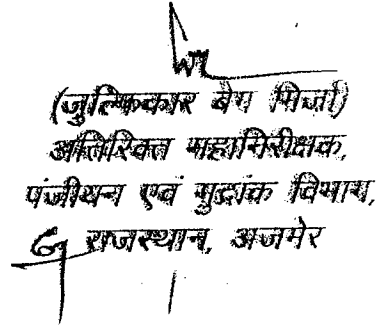 (जुल्फिकार बेग मिर्जा)
अतिरिक्त महानिरीक्षक,
पंजीयन एवं मुद्रांक विभाग,
राजस्थान, अजमेर